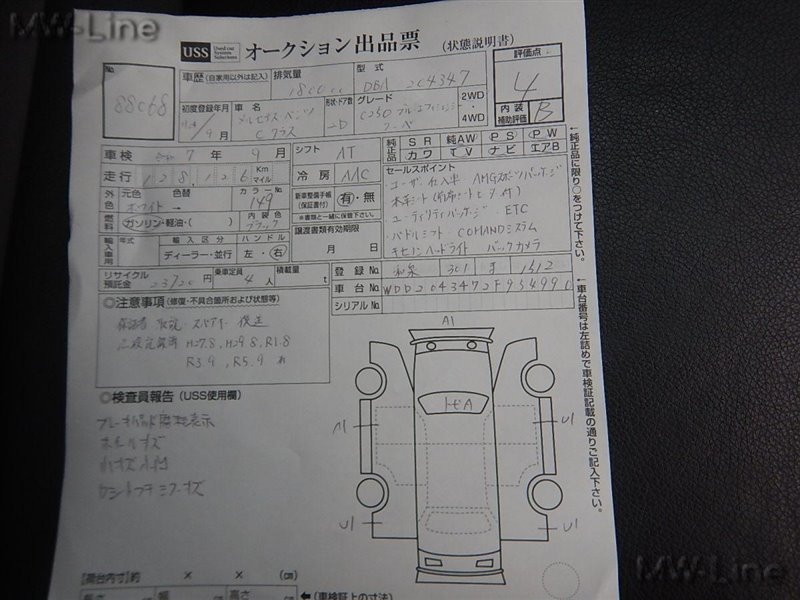 MW-Line
USS Used car System Solutions オークション出品票 (状態説明書)
No.
88068
車歴 (自家用以外は記入)
排気量 1800cc
型式 DBA 204347
評価点 4
内装補助評価 B
初度登録年月
9月
車名 メルセデスベンツ Cクラス
形状・ドア数 2D
グレード C250 ブルーエフィシェンシー クーペ
2WD
4WD
車検 7年 9月
シフト AT
純正品
SR 純AW PS PW
カワ TV ナビ エアB
走行 128,126 Km マイル
冷房 AAC
外色 元色 ホワイト 色替 → カラーNo. 149
新車整備手帳 (保証書付) 有・無
※書類と一緒に保管下さい。
燃料 ガソリン・軽油・( ) 内装色 ブラック
譲渡書類有効期限
月 日
輸入車用 年式 輸入区分 ディーラー・並行 ハンドル 左・右
リサイクル預託金 23120円
乗車定員 4人
積載量 t
セールスポイント
・ユーザー仕入車 AMGスポーツパッケージ
・本革シート(前席シートヒーター付)
・ユーティリティパッケージ ETC
・パドルシフト COMANDシステム
・キセノンヘッドライト バックカメラ
登録No. 和泉 301 ま 1512
車台No. WDD2043472F954990
シリアルNo.
◎注意事項 (修復・不具合箇所および状態等)
保証書 取説 スペアキー 後送
記録簿 H27.8, H29.8, R1.8
R3.9, R5.9 有
◎検査員報告 (USS使用欄)
ホイールキズ
小キズ 小凹
A1
トビA
A1
U1
U1
U1
←純正品に限り○をつけて下さい。
←車台番号は左詰めで車検証記載の通りご記入下さい。
[荷台内寸]約 × × (cm)
長さ 幅 高さ ←(車検証上の寸法)
MW-Line